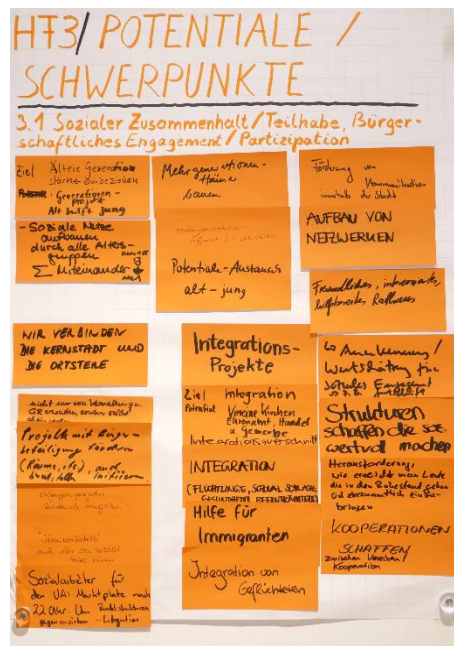 HF3/POTENTIALE /
SCHWERPUNKTE
3.1 Sozialer Zusammenhalt/Teilhabe, Bürger-
schaftliches Engagement/Partizipation
Ziel Ältere Generation
stärker einbeziehen
: Generationen-
projekt
Alt hilft jung
- Soziale Netze
ausbauen
durch alle Alters-
gruppen
∑ Miteinander
NIR VERBINDEN
DIE KERNSTADT UND
DIE ORTSTEILE
nicht nur von Verwaltung,
Projekte mit Bürger-
beteiligung fördern
(Räume, etc)
Sozialarbeiter für
den UA: Marktplatz nach
22 Uhr. Um
gegenzuwirken - Integration
Mehrgenerationen-
Häuser
bauen
Potentiale-Austausch
alt - jung
Integrations-
Projekte
Ziel Integration
Potential Vereine Kirchen
Ehrenamt, Handel
u Gewerbe
INTEGRATION
(FLÜCHTLINGE, SOZIAL SCHWACHE,
Hilfe für
Immigranten
Integration von
Geflüchteten
Förderung von
Kommunikation
innerhalb der Stadt
AUFBAU VON
NETZWERKEN
Freundliches, interessiertes,
hilfsbereites Rathaus
↳ Anerkennung/
Wertschätzung für
soziales Engagement
Strukturen
schaffen die sie
wertvoll machen
Herausforderung:
wie erreicht man Leute
die in den Ruhestand gehen
sich ehrenamtlich einzu-
bringen
KOOPERATIONEN
SCHAFFEN
zwischen Vereinen/
Kooperation